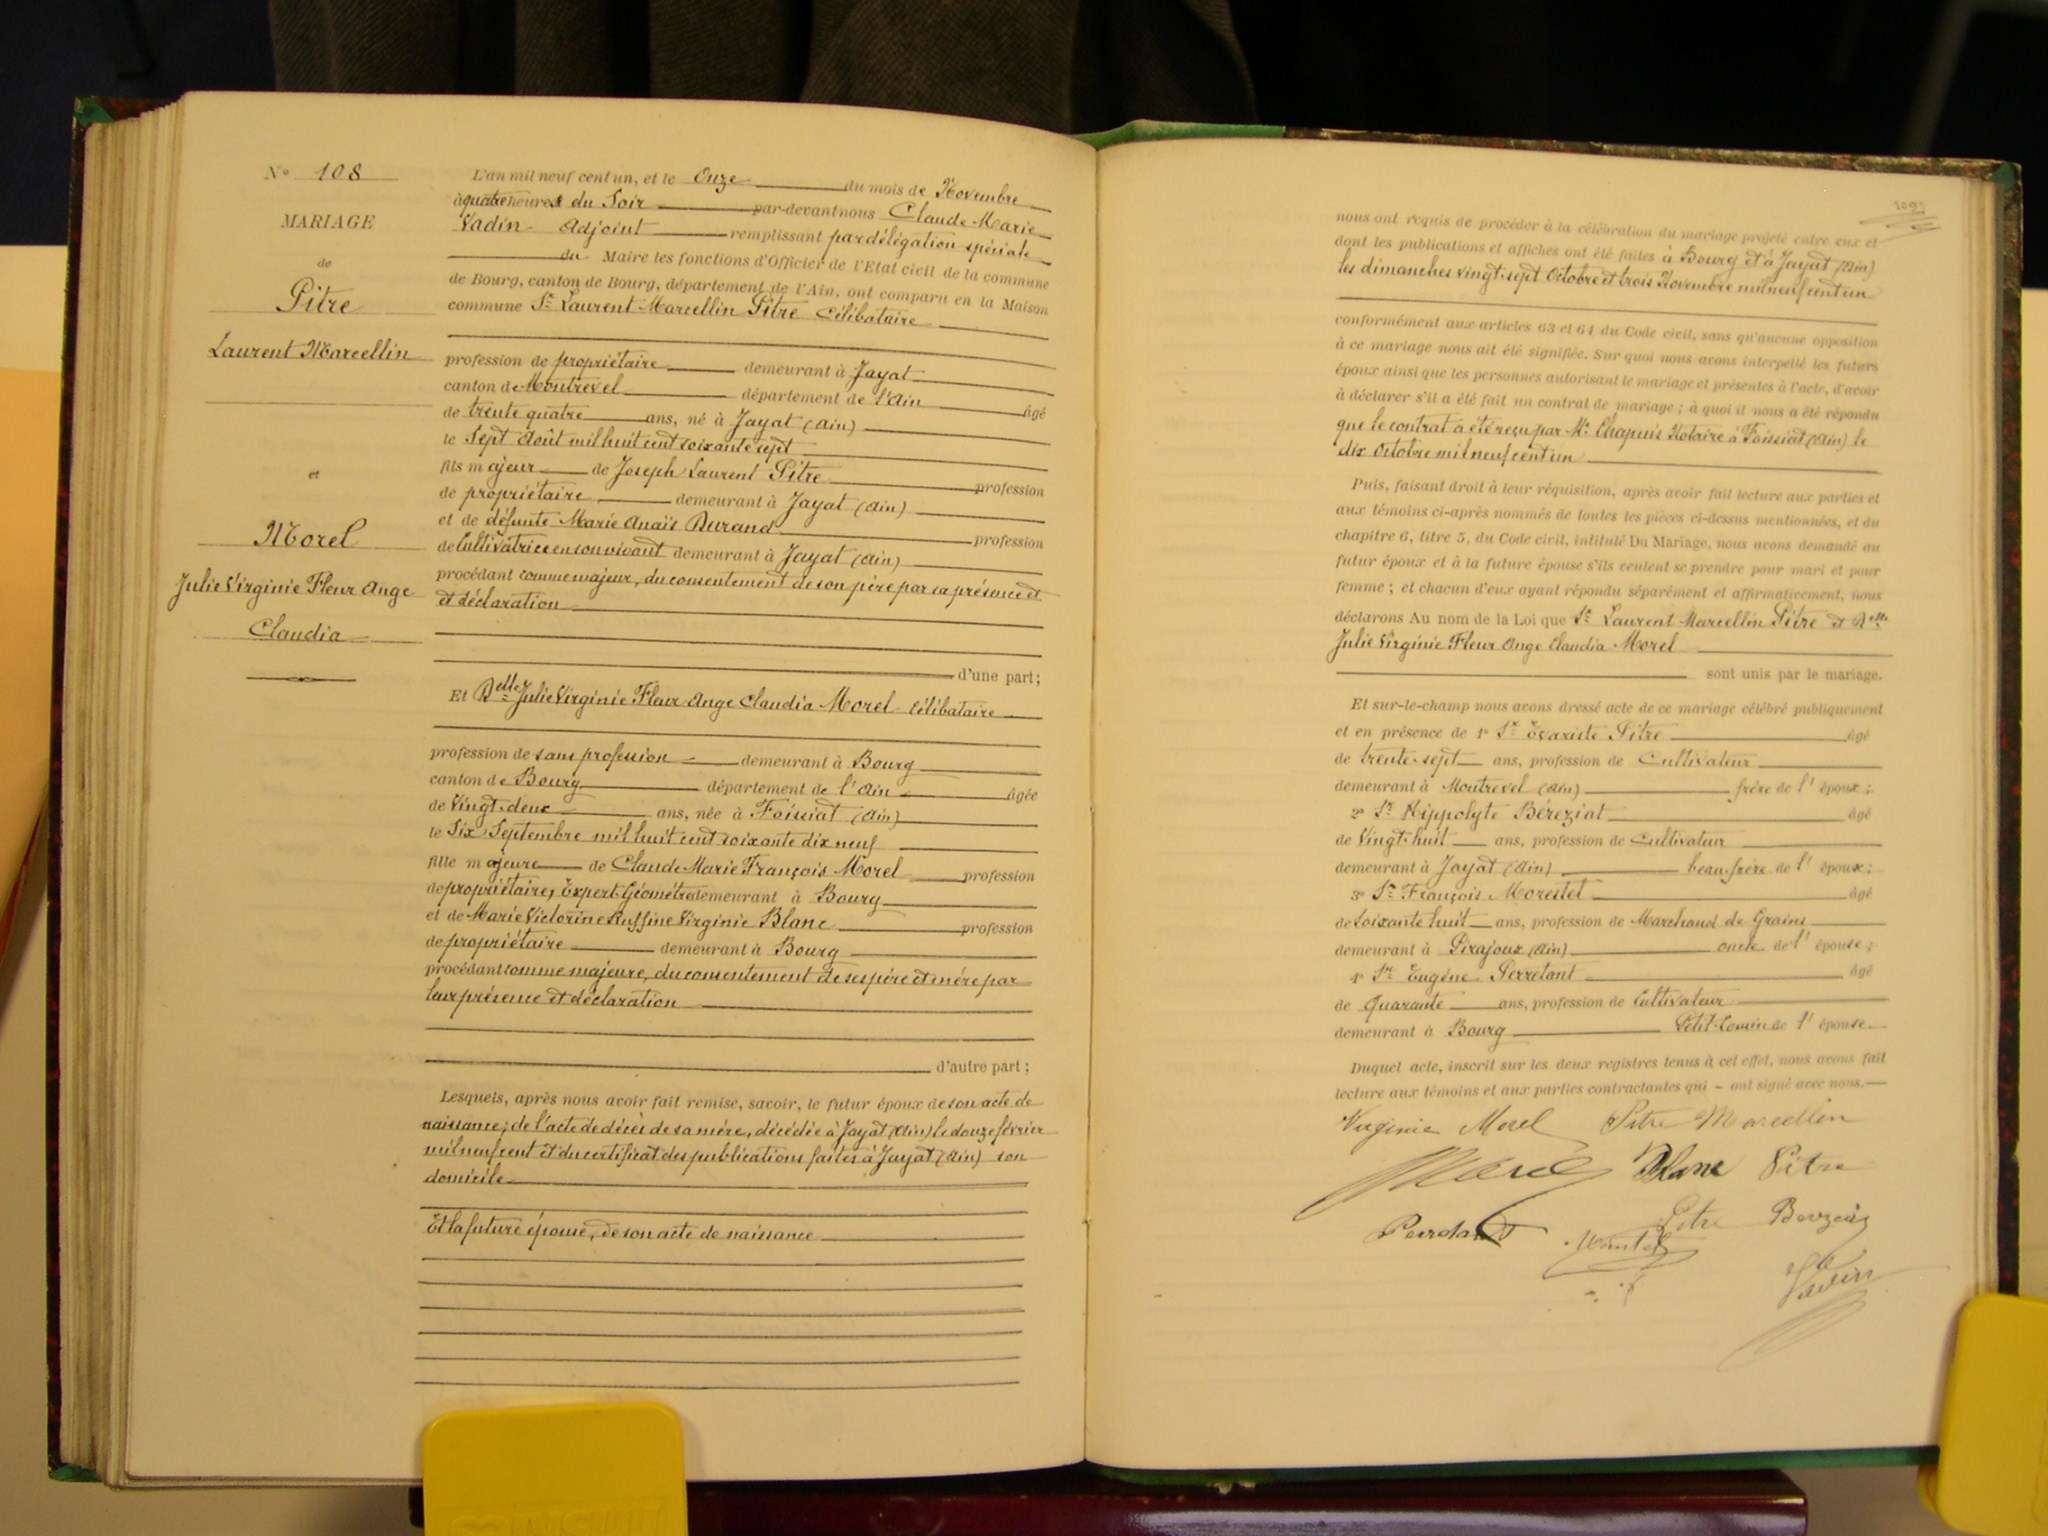 N° 108
MARIAGE
de
Pitre
Laurent Marcellin
et
Morel
Julie Virginie Fleur Ange
Claudia
L'an mil neuf cent un, et le Onze du mois de Novembre
à quatre heures du Soir par-devant nous Claude Marie
Vadin Adjoint remplissant par délégation spéciale
du Maire les fonctions d'Officier de l'Etat civil de la commune
de Bourg, canton de Bourg, département de l'Ain, ont comparu en la Maison
commune Sr Laurent Marcellin Pitre Célibataire
profession de propriétaire demeurant à Jayat
canton de Montrevel département de l'Ain âgé
de trente quatre ans, né à Jayat (Ain)
le Sept Août mil huit cent soixante sept
fils majeur de Joseph Laurent Pitre profession
de propriétaire demeurant à Jayat (Ain)
et de défunte Marie Anaïs Durand profession
de Cultivatrice en son vivant demeurant à Jayat (Ain)
procédant comme majeur, du consentement de son père par sa présence et
et déclaration
d'une part;
Et Delle Julie Virginie Fleur Ange Claudia Morel Célibataire
profession de sans profession demeurant à Bourg
canton de Bourg département de l'Ain âgée
de Vingt-deux ans, née à Foissiat (Ain)
le Six Septembre mil huit cent soixante dix neuf
fille majeure de Claude Marie François Morel profession
de propriétaire, Expert-Géomètre demeurant à Bourg
et de Marie Victorine Ruffine Virginie Blanc profession
de propriétaire demeurant à Bourg
procédant comme majeure, du consentement de ses père et mère par
leur présence et déclaration
d'autre part;
Lesquels, après nous avoir fait remise, savoir, le futur époux de son acte de
naissance; de l'acte de décès de sa mère, décédée à Jayat (Ain) le douze février
mil neuf cent et du certificat des publications faites à Jayat (Ain) son
domicile
Et la future épouse, de son acte de naissance
109
nous ont requis de procéder à la célébration du mariage projeté entre eux et
dont les publications et affiches ont été faites à Bourg et à Jayat (Ain)
les dimanches vingt-sept Octobre et trois Novembre mil neuf cent un
conformément aux articles 63 et 64 du Code civil, sans qu'aucune opposition
à ce mariage nous ait été signifiée. Sur quoi nous avons interpellé les futurs
époux ainsi que les personnes autorisant le mariage et présentes à l'acte, d'avoir
à déclarer s'il a été fait un contrat de mariage; à quoi il nous a été répondu
que le contrat a été reçu par Me Chapuis Notaire à Foissiat (Ain) le
dix Octobre mil neuf cent un
Puis, faisant droit à leur réquisition, après avoir fait lecture aux parties et
aux témoins ci-après nommés de toutes les pièces ci-dessus mentionnées, et du
chapitre 6, titre 5, du Code civil, intitulé Du Mariage, nous avons demandé au
futur époux et à la future épouse s'ils veulent se prendre pour mari et pour
femme; et chacun d'eux ayant répondu séparément et affirmativement, nous
déclarons Au nom de la Loi que Sr Laurent Marcellin Pitre et Delle
Julie Virginie Fleur Ange Claudia Morel
sont unis par le mariage.
Et sur-le-champ nous avons dressé acte de ce mariage célébré publiquement
et en présence de 1° Sr Evariste Pitre âgé
de trente-sept ans, profession de Cultivateur
demeurant à Montrevel (Ain) frère de l'époux;
2° Sr Hippolyte Béreziat âgé
de Vingt-huit ans, profession de Cultivateur
demeurant à Jayat (Ain) beau frère de l'époux;
3° Sr François Morestel âgé
de Soixante huit ans, profession de Marchand de Grains
demeurant à Pirajoux (Ain) oncle de l'épouse;
4° Sr Eugène Perretant âgé
de Quarante ans, profession de Cultivateur
demeurant à Bourg Petit-Cousin de l'épouse
Duquel acte, inscrit sur les deux registres tenus à cet effet, nous avons fait
lecture aux témoins et aux parties contractantes qui ont signé avec nous.
Virginie Morel Pitre Marcellin
Morel Blanc Pitre
Pitre
Vadin